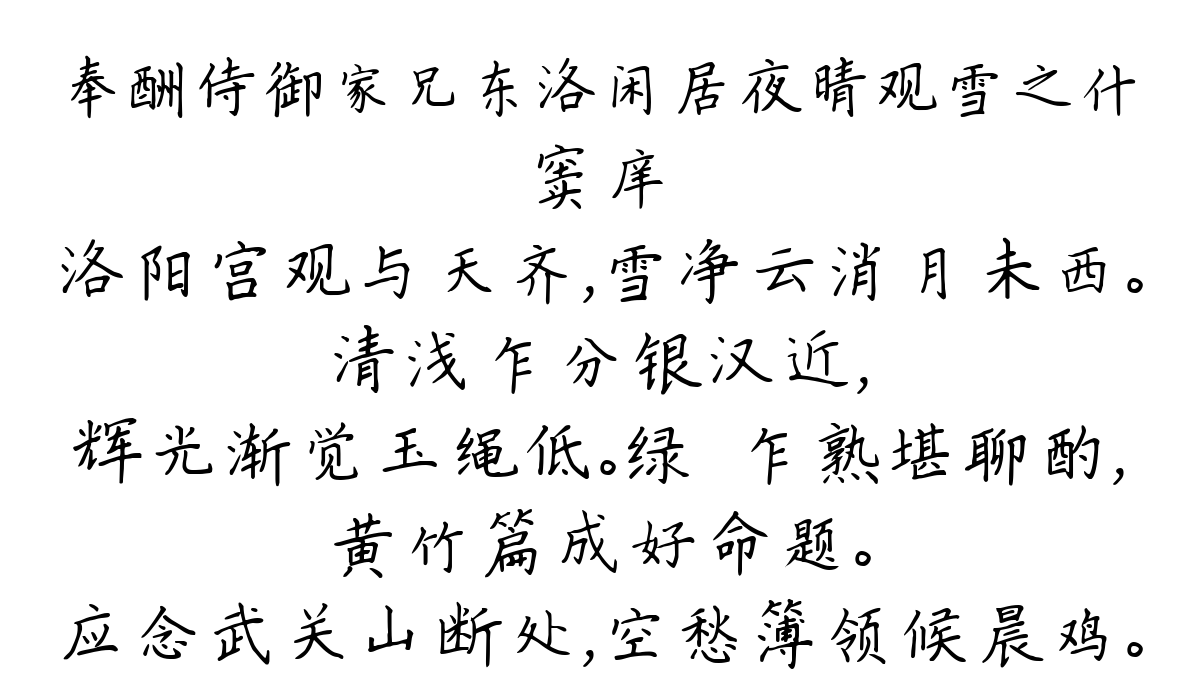 奉酬侍御家兄东洛闲居夜晴观雪之什
窦庠
洛阳宫观与天齐,雪净云消月未西。
清浅乍分银汉近,
辉光渐觉玉绳低。绿 乍熟堪聊酌,
黄竹篇成好命题。
应念武关山断处,空愁簿领候晨鸡。